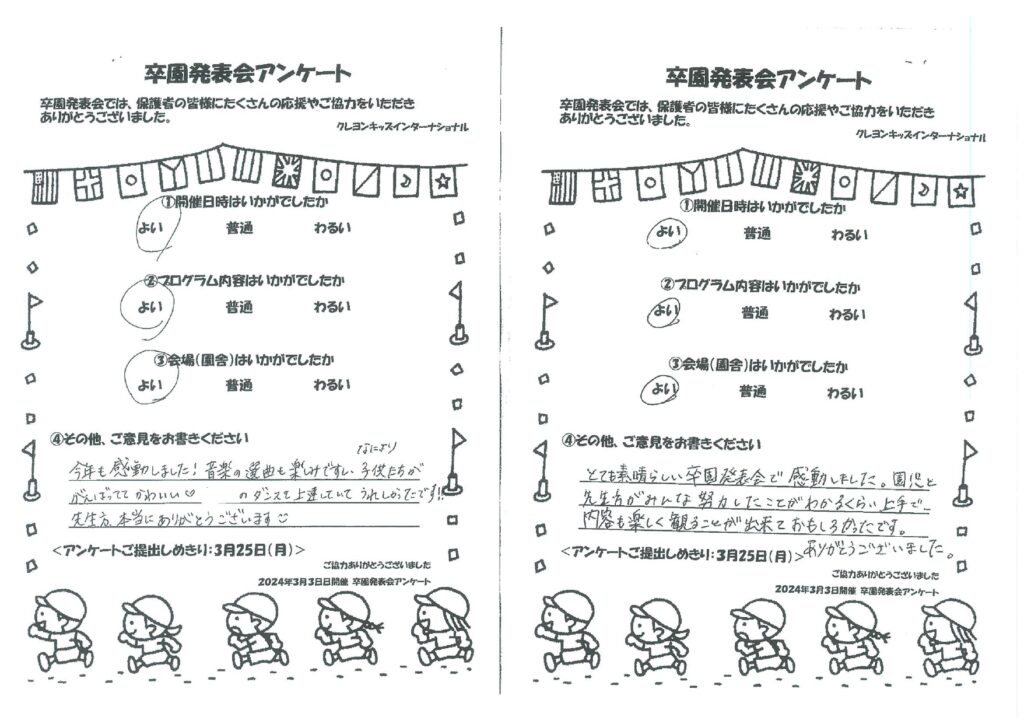 卒園発表会アンケート
卒園発表会では、保護者の皆様にたくさんの応援やご協力をいただき
ありがとうございました。
クレヨンキッズインターナショナル
①開催日時はいかがでしたか
よい 普通 わるい
②プログラム内容はいかがでしたか
よい 普通 わるい
③会場(園舎)はいかがでしたか
よい 普通 わるい
④その他、ご意見をお書きください
なにより
今年も感動しました!音楽の選曲も楽しみですし、子供たちが
がんばっててかわいい のダンスも上達していてうれしかったです!!
先生方、本当にありがとうございます
<アンケートご提出しめきり:3月25日(月)>
ご協力ありがとうございました
2024年3月3日日開催 卒園発表会アンケート
卒園発表会アンケート
卒園発表会では、保護者の皆様にたくさんの応援やご協力をいただき
ありがとうございました。
クレヨンキッズインターナショナル
①開催日時はいかがでしたか
よい 普通 わるい
②プログラム内容はいかがでしたか
よい 普通 わるい
③会場(園舎)はいかがでしたか
よい 普通 わるい
④その他、ご意見をお書きください
とても素晴らしい卒園発表会で感動しました。園児と
先生方がみんな努力したことがわかるくらい上手で、
内容も楽しく観ることが出来ておもしろかったです。
ありがとうございました。
<アンケートご提出しめきり:3月25日(月)>
ご協力ありがとうございました
2024年3月3日開催 卒園発表会アンケート